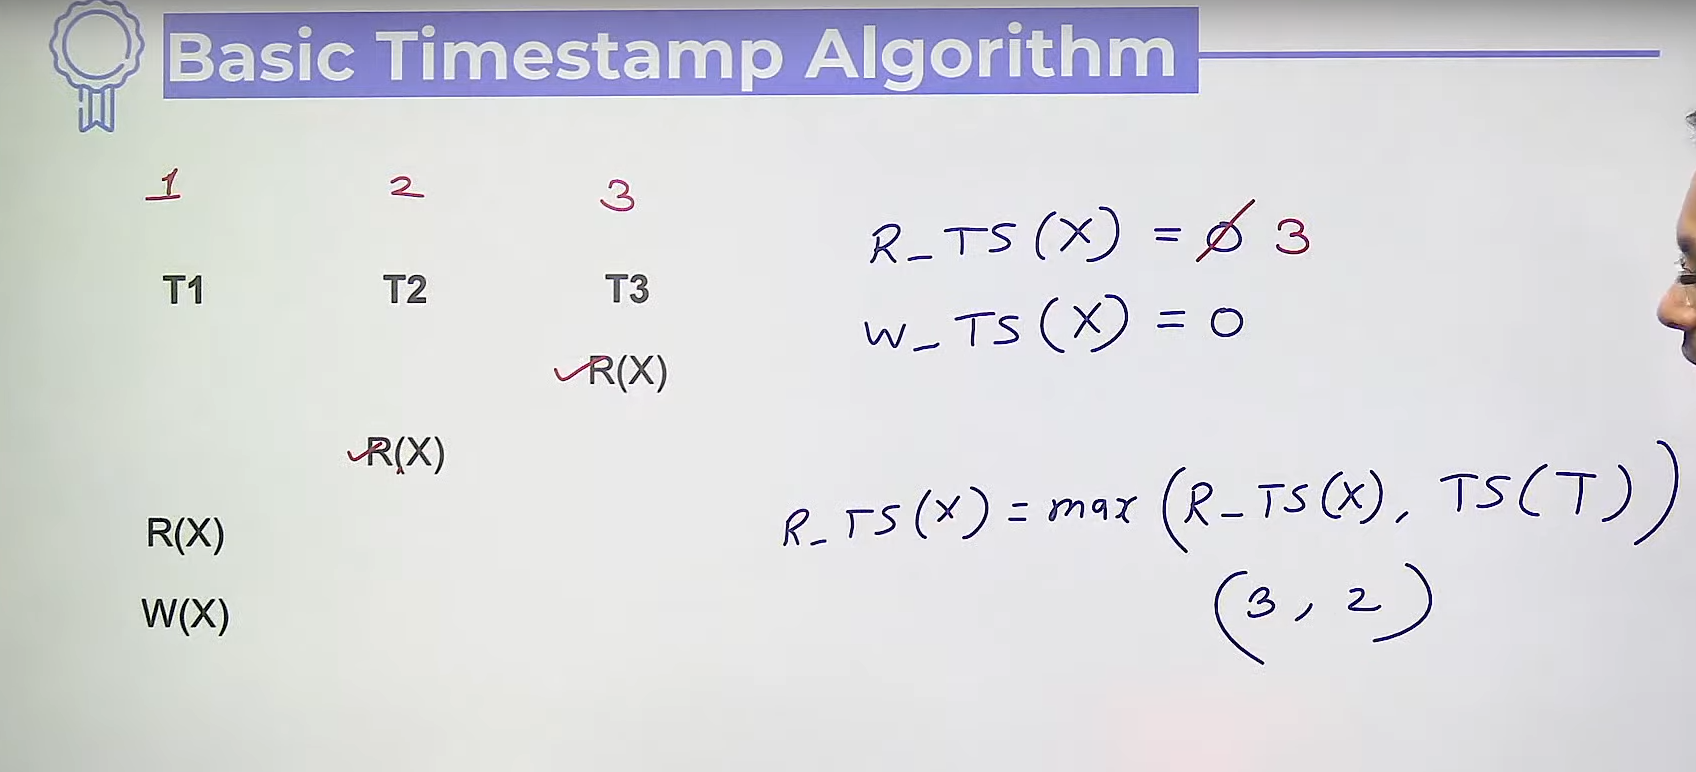 Basic Timestamp Algorithm
1 2 3
T1 T2 T3
R(X)
R(X)
R(X)
W(X)
R_TS(X) = 0 3
W_TS(X) = 0
R_TS(X) = max (R_TS(X), TS(T))
(3, 2)